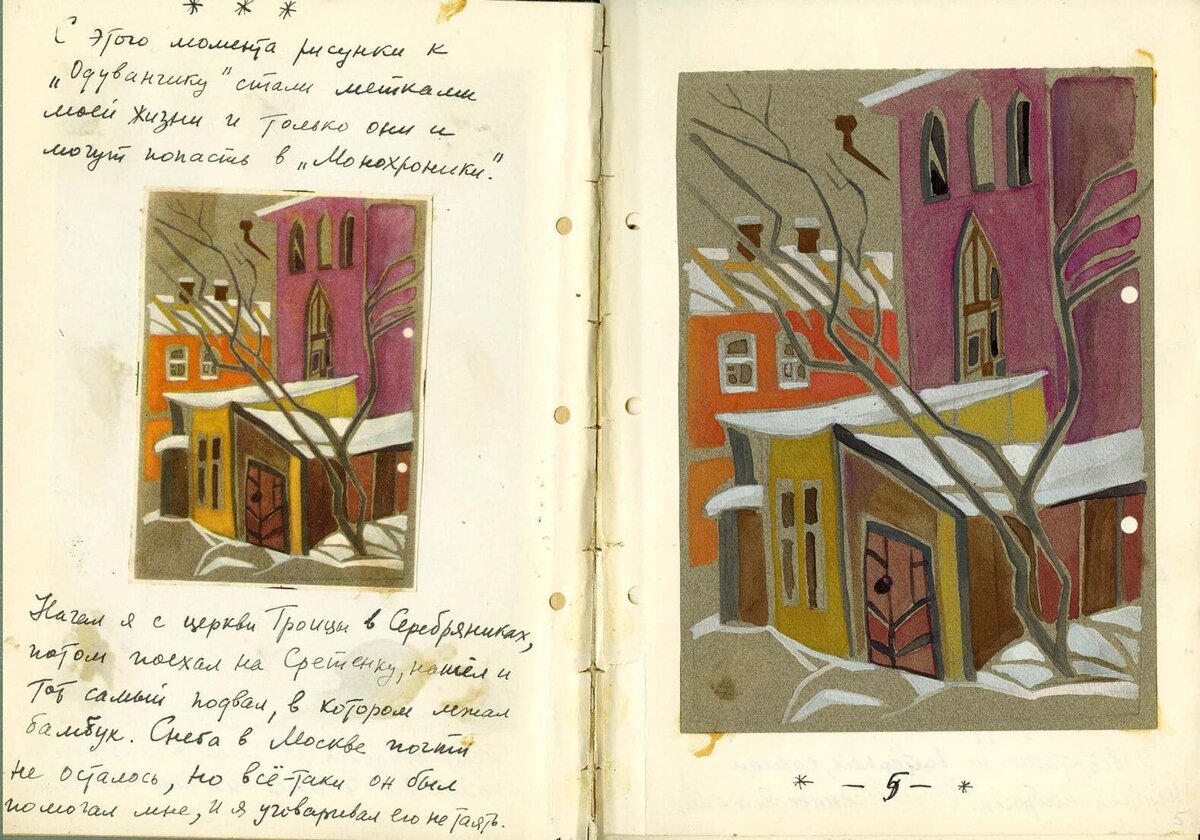 * * *
С этого момента рисунки к
„Одуванчику" стали метками
моей жизни и только они и
могут попасть в „Монохроники."
Начал я с церкви Троицы в Серебряниках,
потом поехал на Сретенку, нашёл и
тот самый подвал, в котором лежал
бамбук. Снега в Москве почти
не осталось, но всё-таки он был
помогал мне, и я уговаривал его не таять.
* — 5 — *